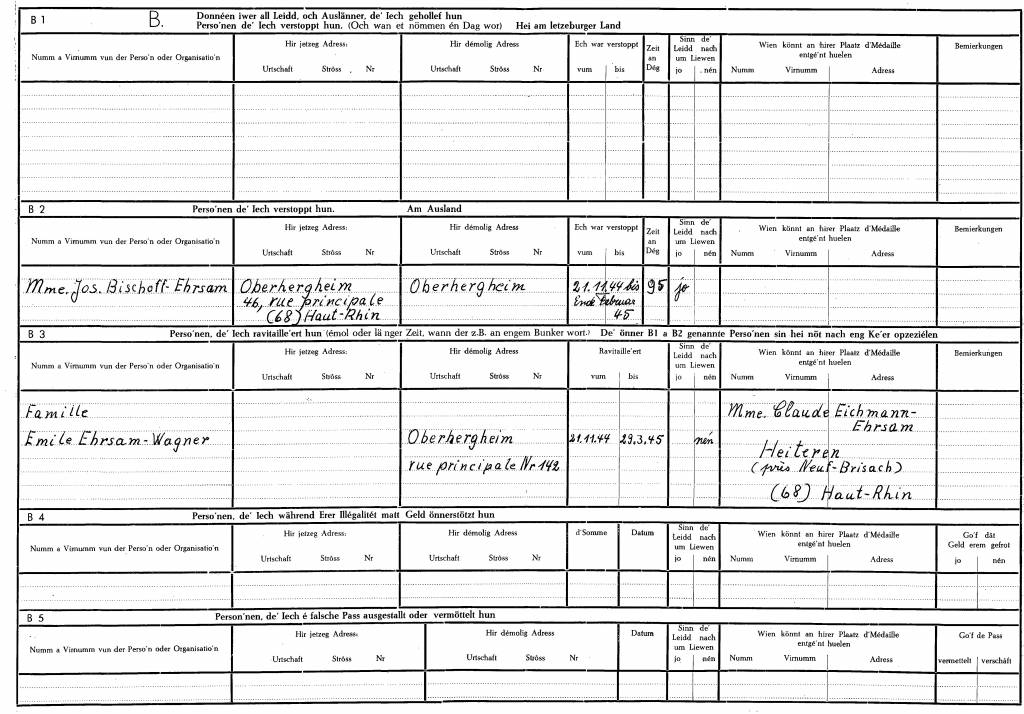 B 1 B. Donnéen iwer all Leidd, och Auslänner, de' Iech gehollef hun
Perso'nen de' Iech verstoppt hun. (Och wan et nömmen én Dag wor) Hei am letzeburger Land
Numm a Virnumm vun der Perso'n oder Organisatio'n
Hir jetzeg Adress:
Urtschaft Ströss Nr
Hir démolig Adress
Urtschaft Ströss Nr
Ech war verstoppt
vum bis
Zeit
an
Dég
Sinn de'
Leidd nach
um Liewen
jo nén
Wien könnt an hirer Plaatz d'Médaille
entgé'nt huelen
Numm Virnumm Adress
Bemierkungen
B 2 Perso'nen de' Iech verstoppt hun. Am Ausland
Numm a Virnumm vun der Perso'n oder Organisatio'n
Hir jetzeg Adress:
Urtschaft Ströss Nr
Hir démolig Adress
Urtschaft Ströss Nr
Ech war verstoppt
vum bis
Zeit
an
Dég
Sinn de'
Leidd nach
um Liewen
jo nén
Wien könnt an hirer Plaatz d'Médaille
entgé'nt huelen
Numm Virnumm Adress
Bemierkungen
Mme. Jos. Bischoff-Ehrsam
Oberhergheim
46, rue principale
(68) Haut-Rhin
Oberhergheim
21.11.44 bis
Ende Februar
45
95
jo
B 3 Perso'nen, de' Iech ravitaille'ert hun (émol oder länger Zeit, wann der z.B. an engem Bunker wort.) De' önner B1 a B2 genannte Perso'nen sin hei nöt nach eng Ke'er opzeziélen
Numm a Virnumm vun der Perso'n oder Organisatio'n
Hir jetzeg Adress:
Urtschaft Ströss Nr
Hir démolig Adress
Urtschaft Ströss Nr
Ravitaille'ert
vum bis
Sinn de'
Leidd nach
um Liewen
jo nén
Wien könnt an hirer Plaatz d'Médaille
entgé'nt huelen
Numm Virnumm Adress
Bemierkungen
Famille
Emile Ehrsam-Wagner
Oberhergheim
rue principale Nr 142
21.11.44 29.3.45
nén
Mme. Claude Eichmann-
Ehrsam
Heiteren
(près Neuf-Brisach)
(68) Haut-Rhin
B 4 Perso'nen, de' Iech während Erer Illégalitét matt Geld önnerstötzt hun
Numm a Virnumm vun der Perso'n oder Organisatio'n
Hir jetzeg Adress:
Urtschaft Ströss Nr
Hir démolig Adress
Urtschaft Ströss Nr
d'Somme
Datum
Sinn de'
Leidd nach
um Liewen
jo nén
Wien könnt an hirer Plaatz d'Médaille
entgé'nt huelen
Numm Virnumm Adress
Go'f dât
Geld erem gefrot
jo nén
B 5 Person'nen, de' Iech é falsche Pass ausgestallt oder vermöttelt hun
Numm a Virnumm vun der Perso'n oder Organisatio'n
Hir jetzeg Adress:
Urtschaft Ströss Nr
Hir démolig Adress
Urtschaft Ströss Nr
Datum
Sinn de'
Leidd nach
um Liewen
jo nén
Wien könnt an hirer Plaatz d'Médaille
entgé'nt huelen
Numm Virnumm Adress
Go'f de Pass
vermettelt verschâft